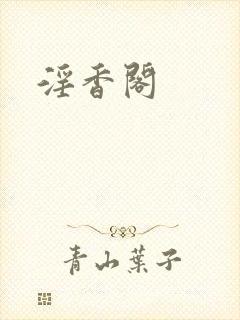 淫香閣
青山葉子